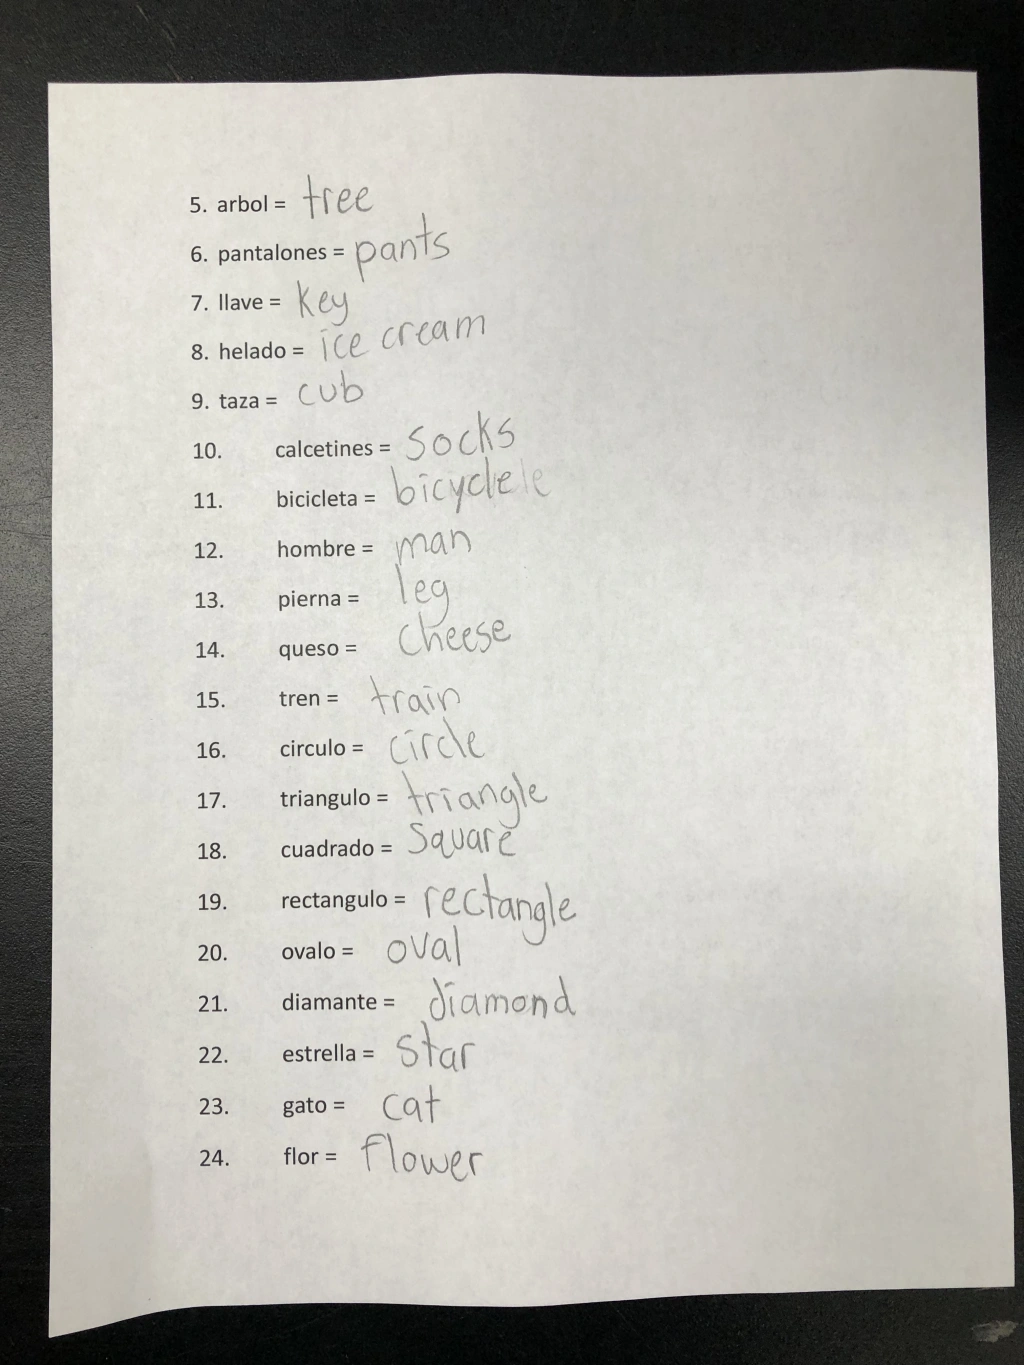 5. arbol = tree
6. pantalones = pants
7. llave = key
8. helado = ice cream
9. taza = cub
10. calcetines = socks
11. bicicleta = bicycle
12. hombre = man
13. pierna = leg
14. queso = cheese
15. tren = train
16. circulo = circle
17. triangulo = triangle
18. cuadrado = square
19. rectangulo = rectangle
20. ovalo = oval
21. diamante = diamond
22. estrella = star
23. gato = cat
24. flor = flower